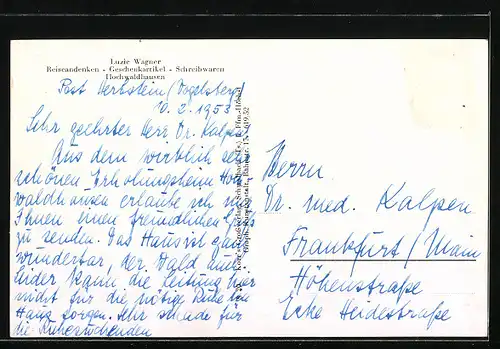 Luzie Wagner
Reiseandenken - Geschenkartikel - Schreibwaren
Hochwaldhausen
Post Herbstein (Vogelsberg)
10. 2. 1953
Sehr geehrter Herr Dr. Kalpen
Aus dem wirklich sehr
schönen Erholungsheim Hoch
waldhausen erlaube ich mir
Ihnen einen freundlichen Gruß
zu senden. Das Haus ist ganz
wunderbar, der Wald auch.
Leider kann die Leitung hier
nicht für die nötige Ruhe im
Haus sorgen. Sehr schade für
die Ruhesuchenden
Herrn
Dr. med. Kalpen
Frankfurt/Main
Höhenstraße
Ecke Heidestraße